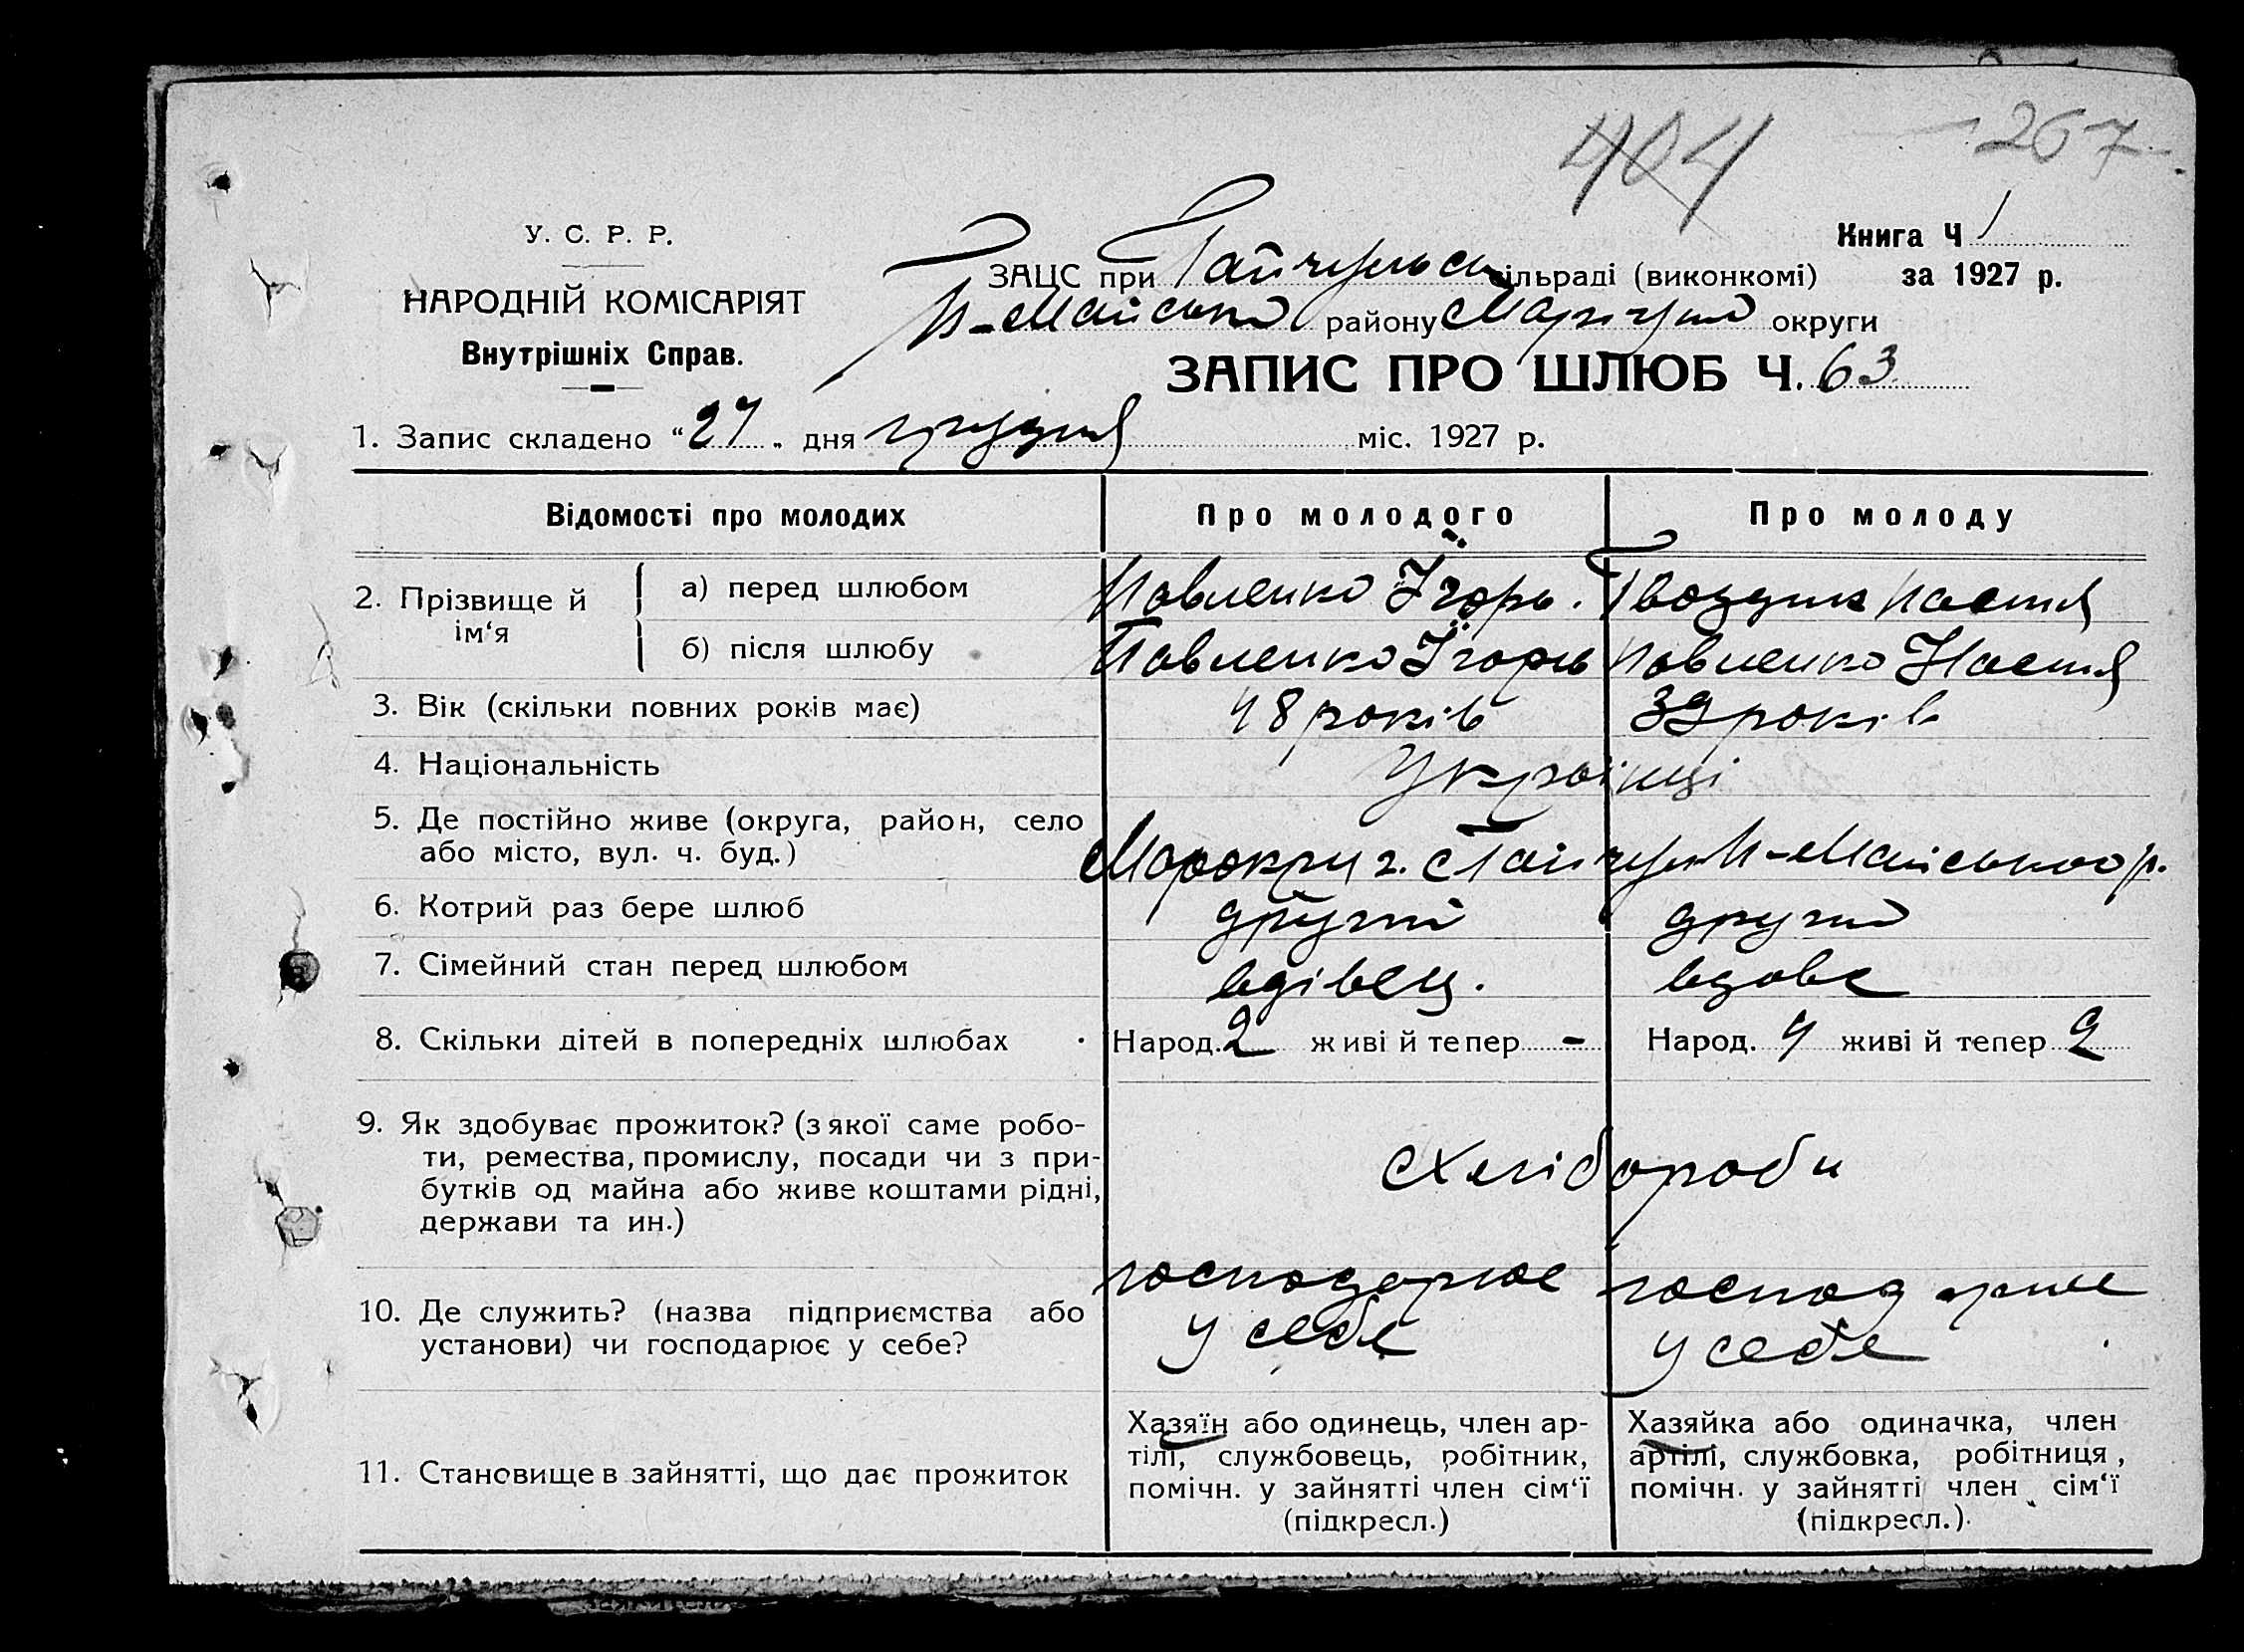 404
267
У. С. Р. Р.
НАРОДНІЙ КОМІСАРІЯТ
Внутрішніх Справ.
Книга Ч 1
за 1927 р.
ЗАЦС при Гайчульськ сільраді (виконкомі)
району округи
ЗАПИС ПРО ШЛЮБ Ч. 63
1. Запис складено “27„ дня грудня міс. 1927 р.
Відомості про молодих Про молодого Про молоду
2. Прізвище й ім‘я
а) перед шлюбом Павленко Ігорь. Гвоздик Настя
б) після шлюбу Павленко Ігорь Павленко Настя
3. Вік (скільки повних років має) 48 років 39 років
4. Національність Українці
5. Де постійно живе (округа, район, село
або місто, вул. ч. буд.)
6. Котрий раз бере шлюб другий другий
7. Сімейний стан перед шлюбом вдівец. вдова
8. Скільки дітей в попередніх шлюбах Народ. 2 живі й тепер - Народ. 4 живі й тепер 2
9. Як здобуває прожиток? (з якої саме робо-
ти, ремества, промислу, посади чи з при-
бутків од майна або живе коштами рідні,
держави та ин.)
Хлібороби
10. Де служить? (назва підприємства або
установи) чи господарює у себе?
господарює
у себе
господарює
у себе
11. Становище в зайнятті, що дає прожиток
Хазяїн або одинець, член ар-
тілі, службовець, робітник,
помічн. у зайнятті член сім‘ї
(підкресл.)
Хазяйка або одиначка, член
артілі, службовка, робітниця,
помічн. у зайнятті член сім‘ї
(підкресл.)